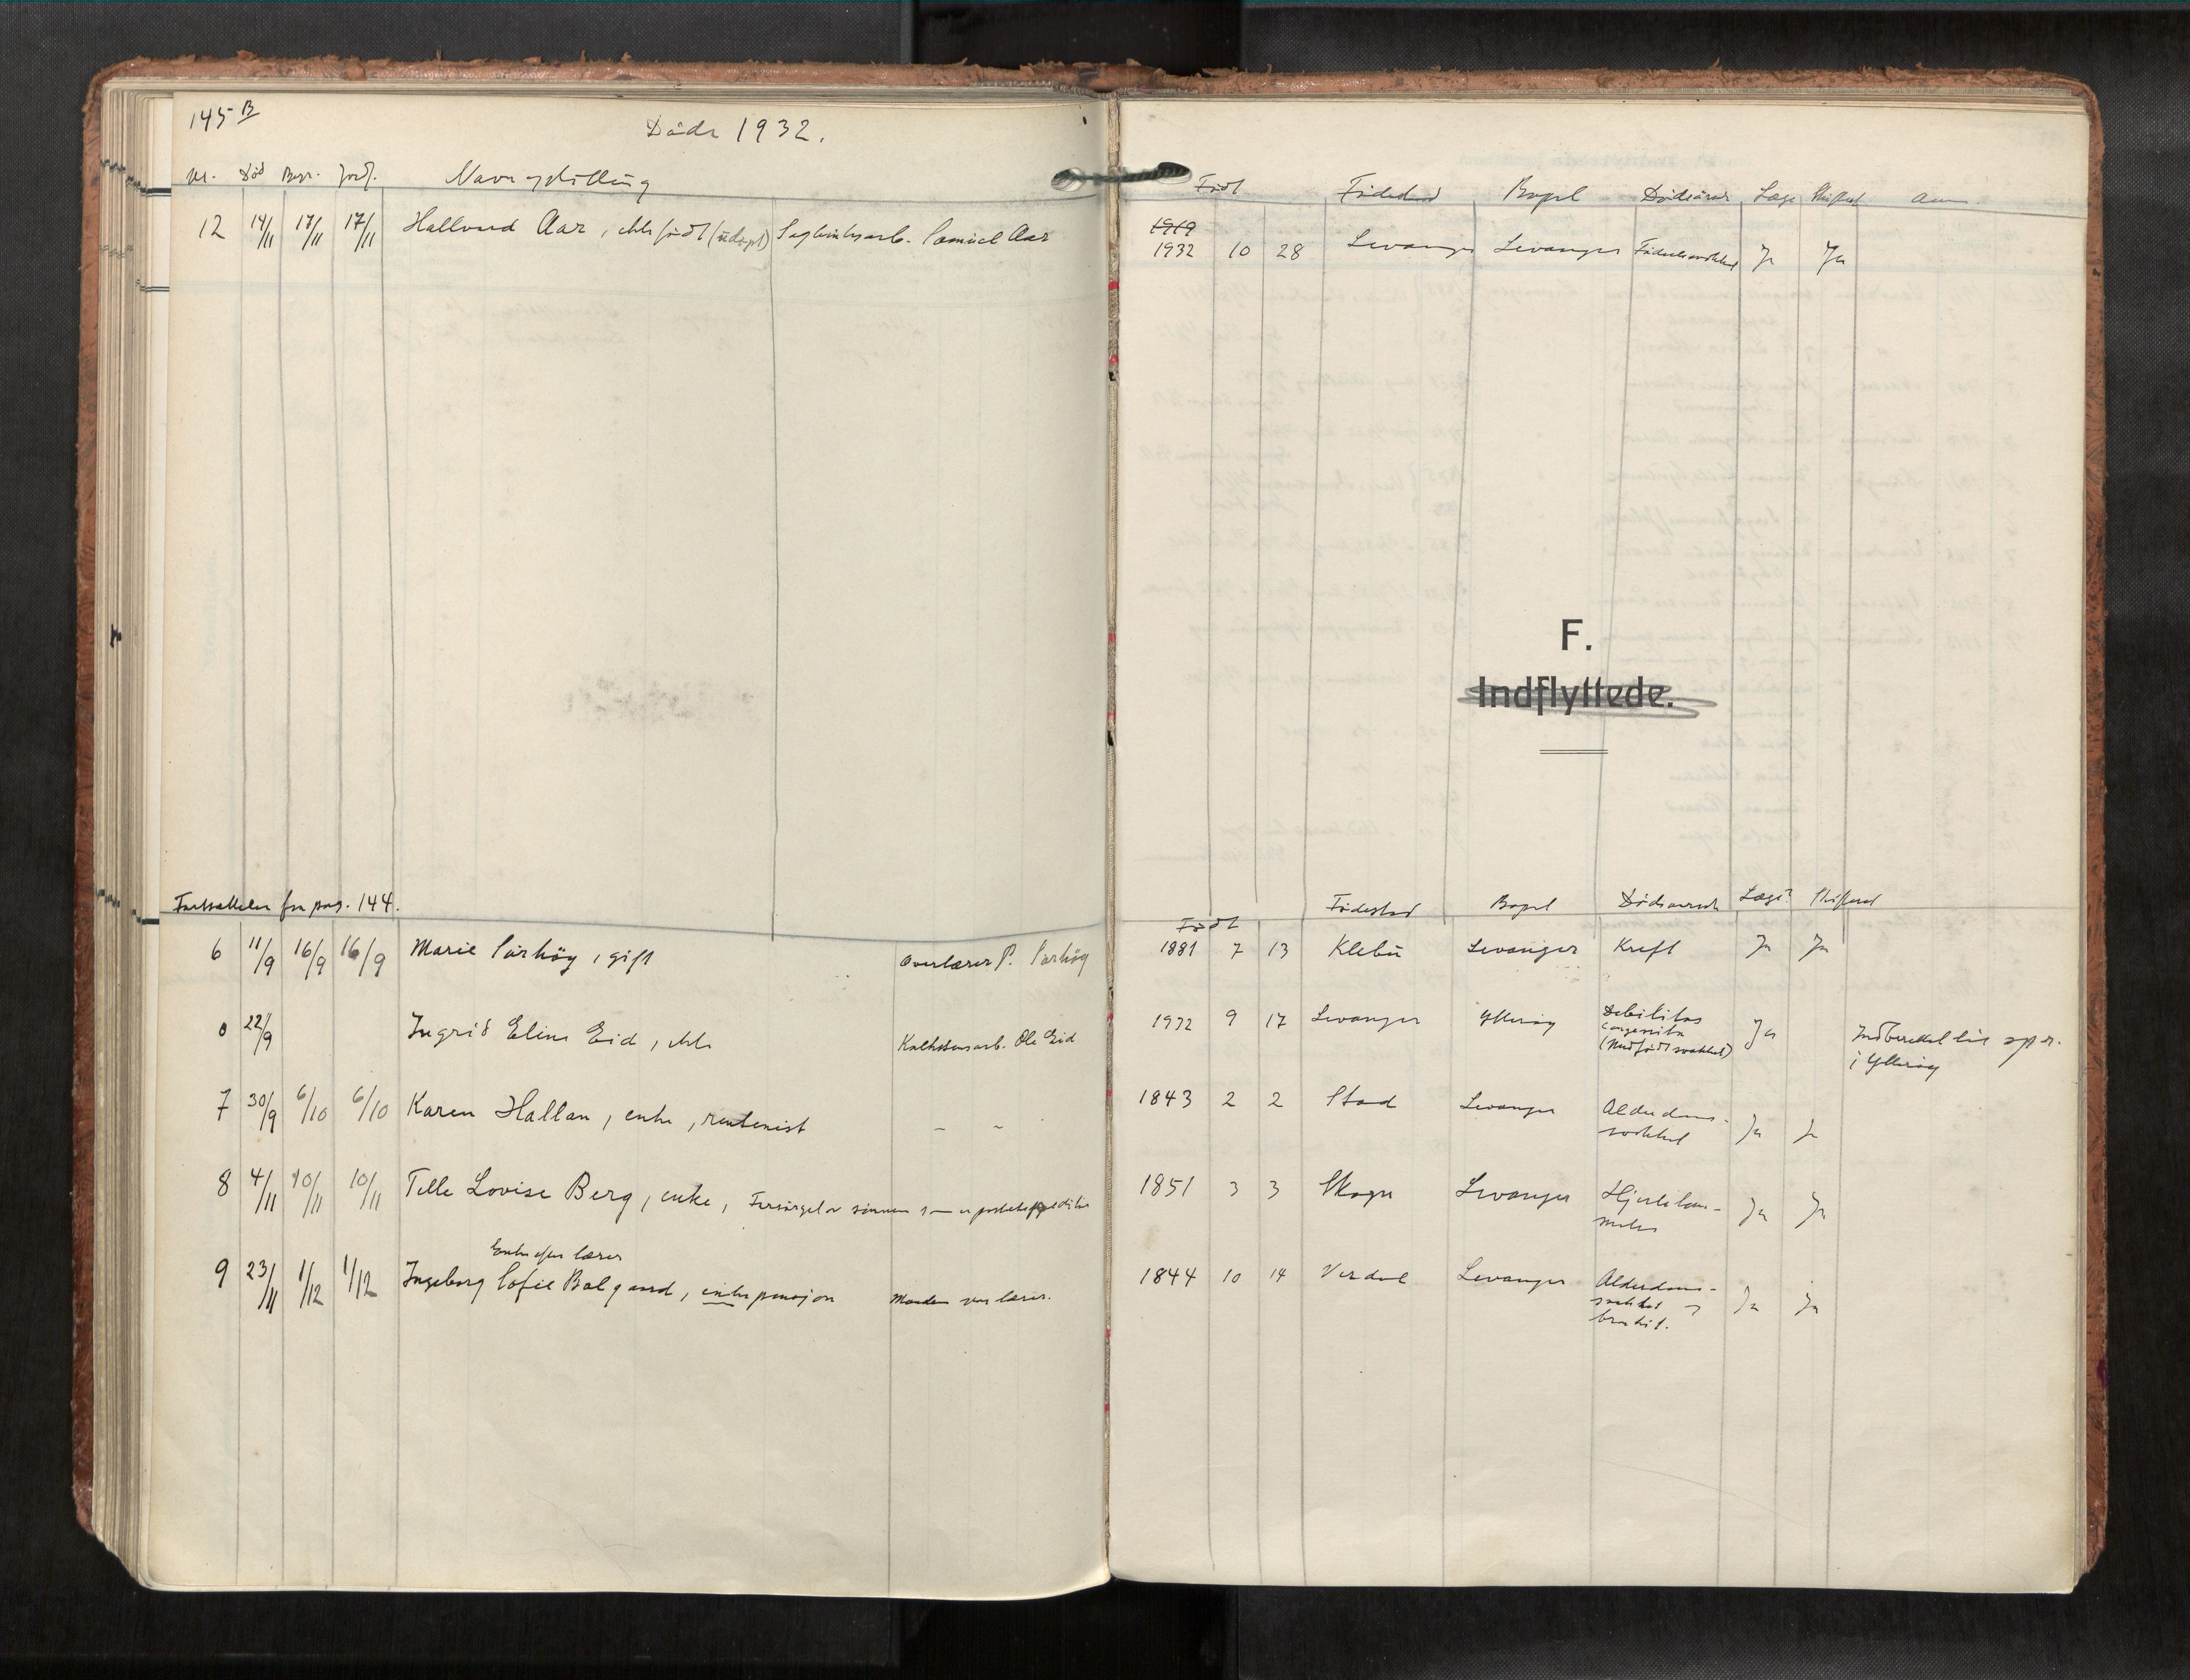 145 B
Døde 1932.
Nr. Død Begr. Jordf. Navn og stilling
Født Fødested Bopel Dødsårsak Læge Skifteret Anm.
12 14/11 17/11 17/11 Hallvard Aar, ekte født (udøpt) Sagbruksarb. Samuel Aar
1919
1932 10 28 Levanger Levanger Fødselssvakhet Ja Ja
F.
Indflyttede.
Fortsættelse fra pag. 144.
Født Fødested Bopel Dødsaarsak Læge? Skifteret
6 11/9 16/9 16/9 Marie Sørhøy, gift Overlærer P. Sørhøy 1881 7 13 Klebu Levanger Kreft Ja Ja
0 22/9 Ingrid Eline Eid, ekte Kalkstensarb. Ole Eid 1932 9 17 Levanger Ytterøy Debilitas
congenita
(Medfødt svakhet) Ja Indberettet til spr.
i Ytterøy
7 30/9 6/10 6/10 Karen Hallan, enke, rentenist – – 1843 2 2 Stod Levanger Alderdoms-
svakhet Ja Ja
8 4/11 10/11 10/11 Lovise Berg, enke, Forsørget av sønnen som er postekspeditør 1851 3 3 Skogn Levanger Hjertelam-
melse Ja Ja
Enke efter lærer
9 23/11 1/12 1/12 Ingeborg Sofie Balgaard, enkepensjon Manden var lærer. 1844 10 14 Verdal Levanger Alderdoms-
svakhet og
bronkit. Ja Ja